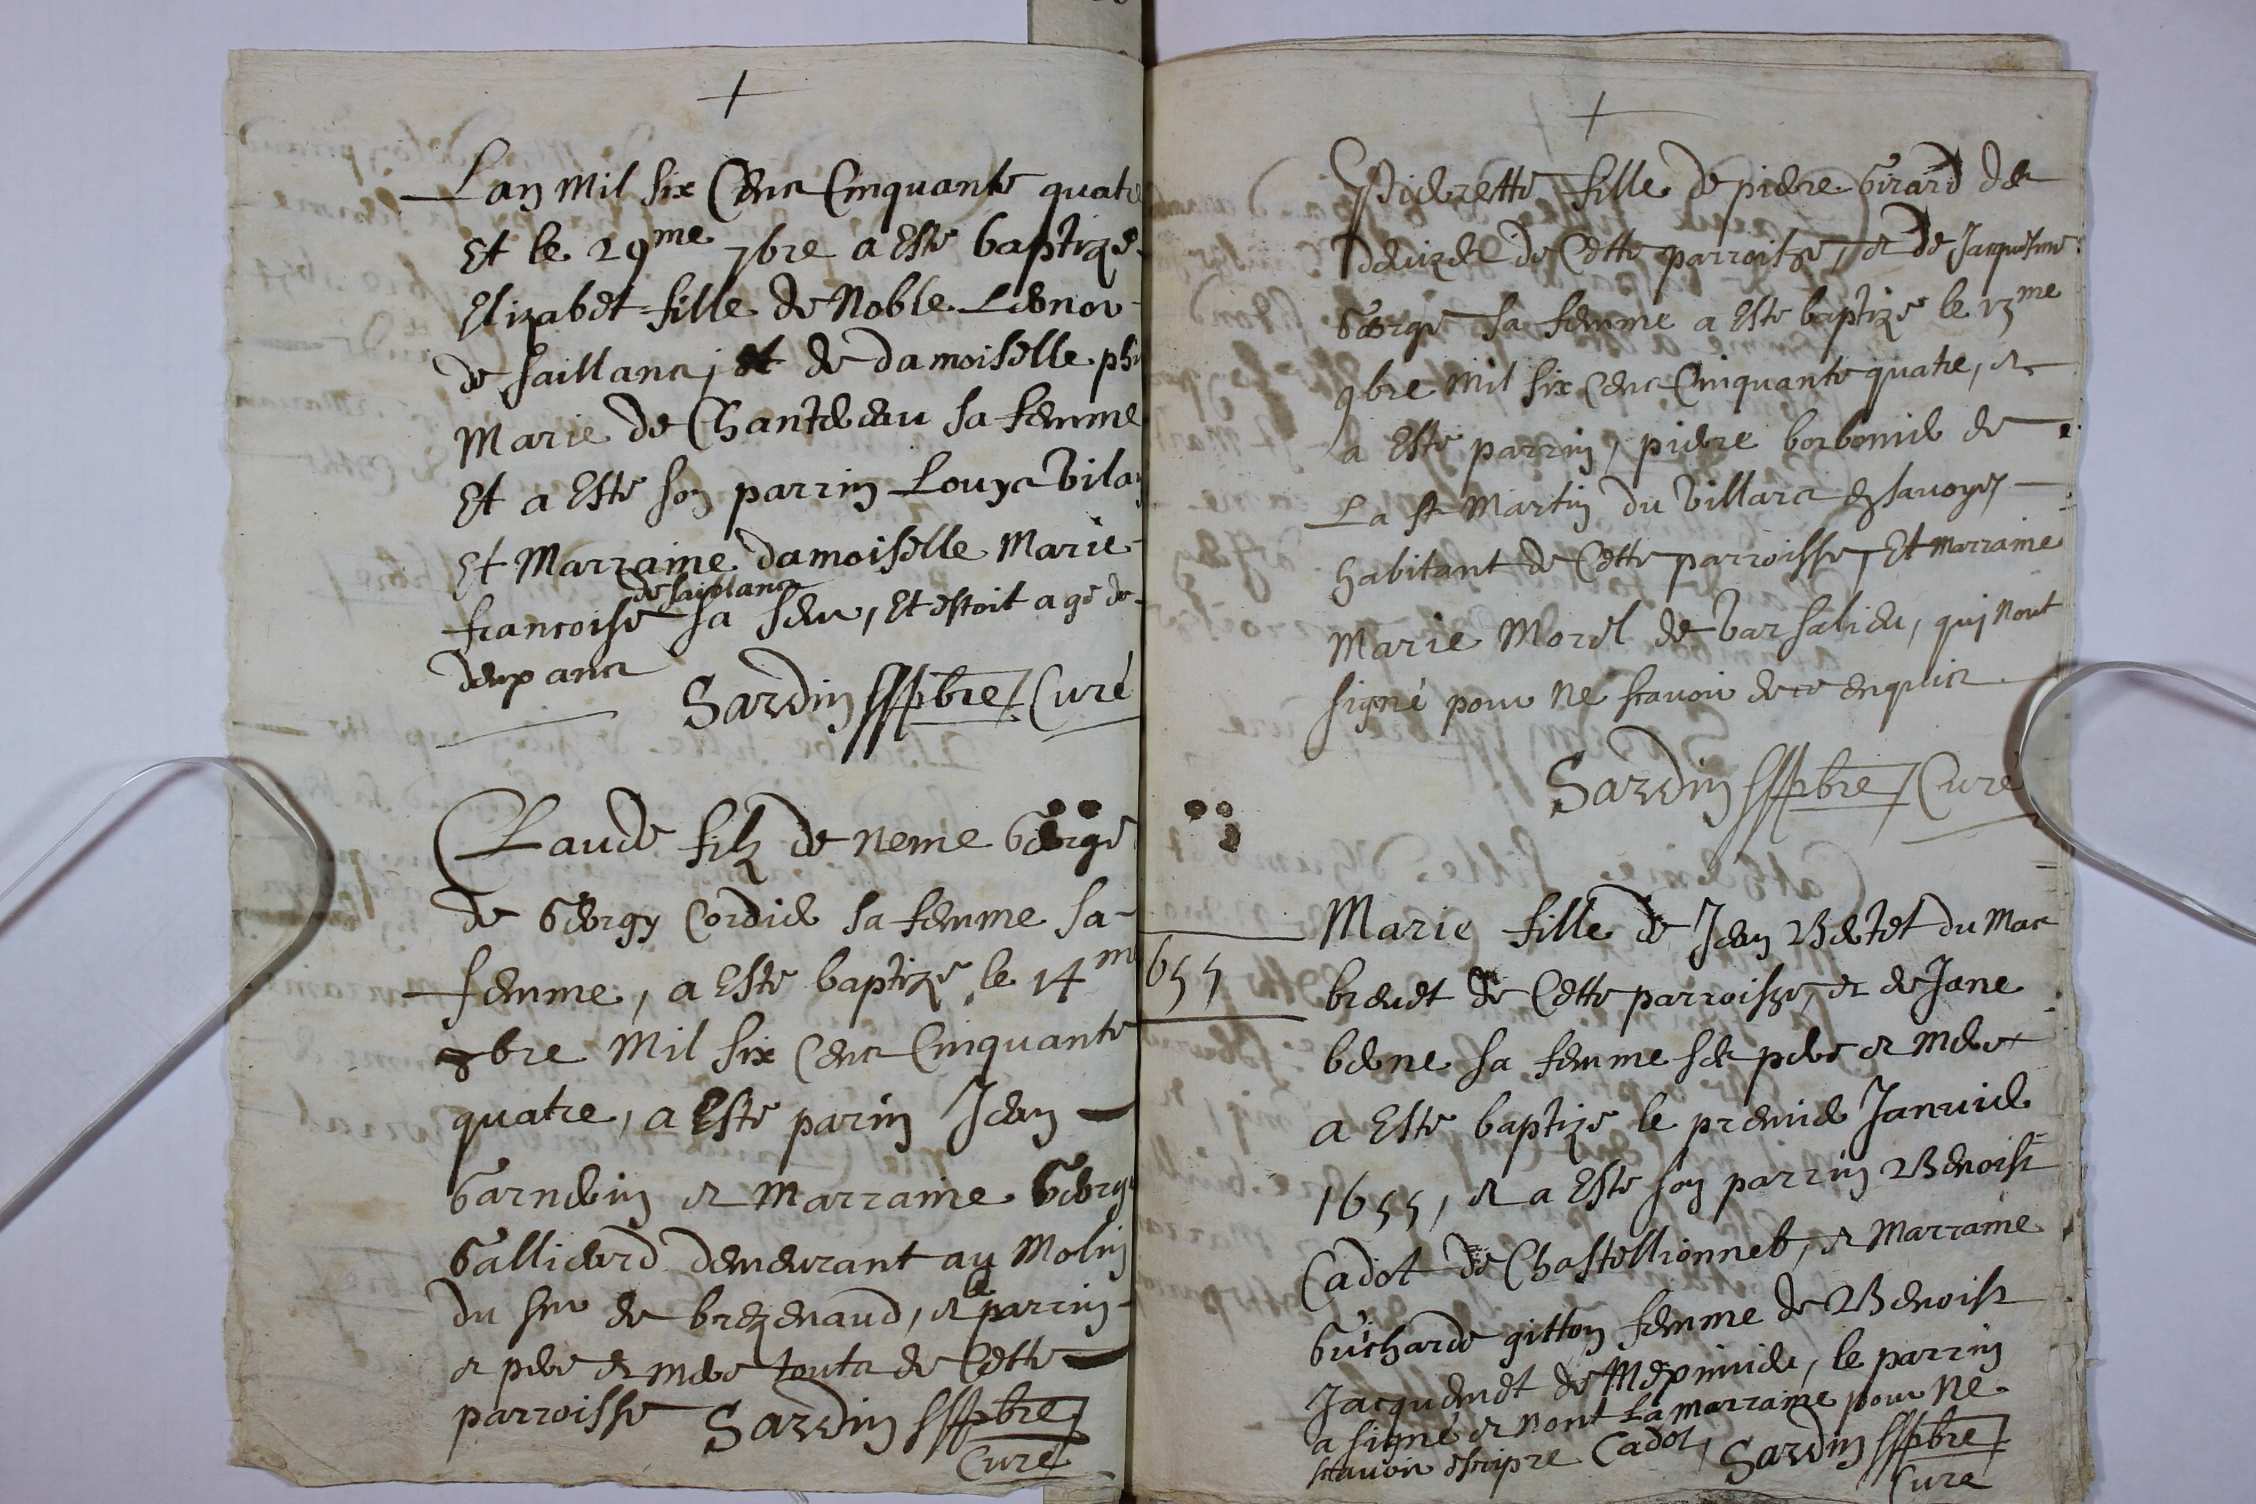 Lan mil six Cens Cinquante quatre
Et le 29me 7bre a esté baptizé
Elizabet fille de Noble Leonor
de saillans, et de damoiselle phi
Marie de Chanteleau sa femme
Et a esté son parrin Louys
Et Marraine damoiselle Marie
de saillans
francoise sa seur, Et estoit agé de
deux ans
Sardin pbre Curé
Claude filz de neme George
de Georgy Cordier sa femme sa
femme, a esté baptizé le 14me
8bre mil six Cens Cinquante
quatre, a esté parin Jean
Garnerin et marraine George
Gallierd demeurant au Molin
du sieur de brezenaud, et le parrin
et pere et mere touts de Cette
parroisse Sardin pbre
Curé
Pierrette fille de pierre Girard des
de Cette parroisse, et de Jaquesme
George sa femme a esté baptizé le 13me
9bre mil six Cens Cinquante quatre, et
a esté parrin, pierre borbonnié de
La st Martin du Villars en savoyes
habitant de Cette parroisse, Et marraine
Marie Morel de Varsalieu, qui nont
signé pour ne scavoir de ce enquis
Sardin pbre Curé
655
Marie fille de Jean Betet du mas
brenet de Cette parroisse, et de Jane
berne sa femme ses pere et mere
a esté baptizé le premier Janvier
1655, et a esté son parrin Benoist
Cadot de Chastellionnet, et Marraine
Guicharde gitton femme de Benoist
Jacquemet de Mepinnier, le parrin
a signé et nont La marraine pour ne
scavoir escripre Cadot, Sardin pbre
Curé